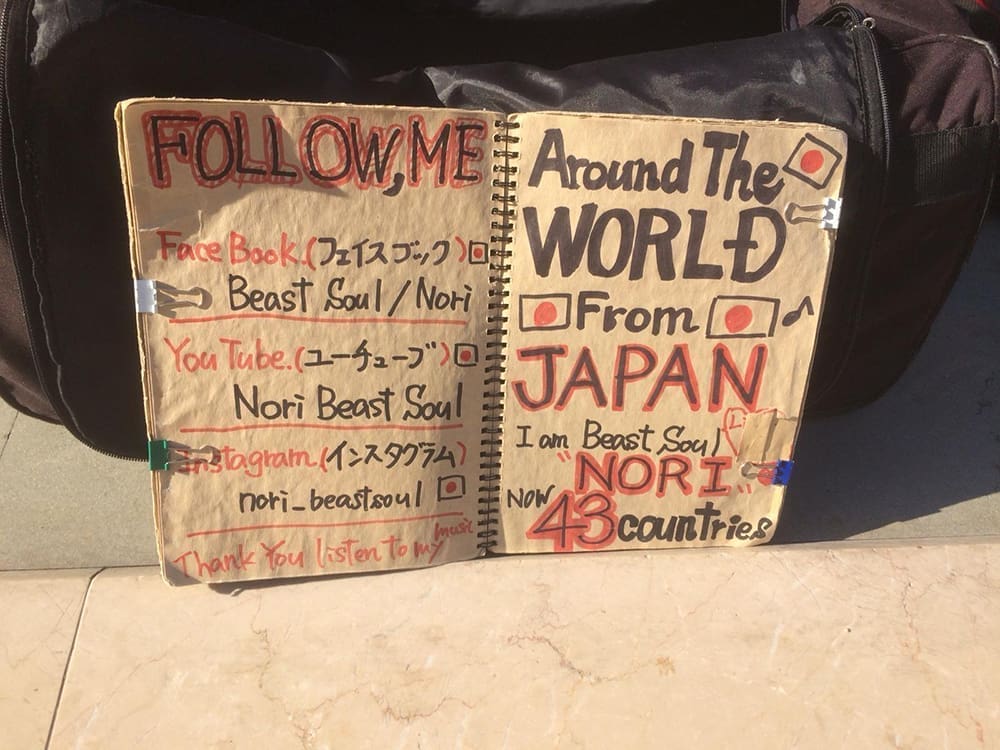 FOLLOW, ME
Face Book.(フェイスブック)
Beast Soul/Nori
You Tube.(ユーチューブ)
Nori Beast Soul
instagram.(インスタグラム)
nori_beastsoul
Thank You listen to my music
Around The
WORLD
From
JAPAN
I am Beast Soul
"NORI"
NOW 43 countries